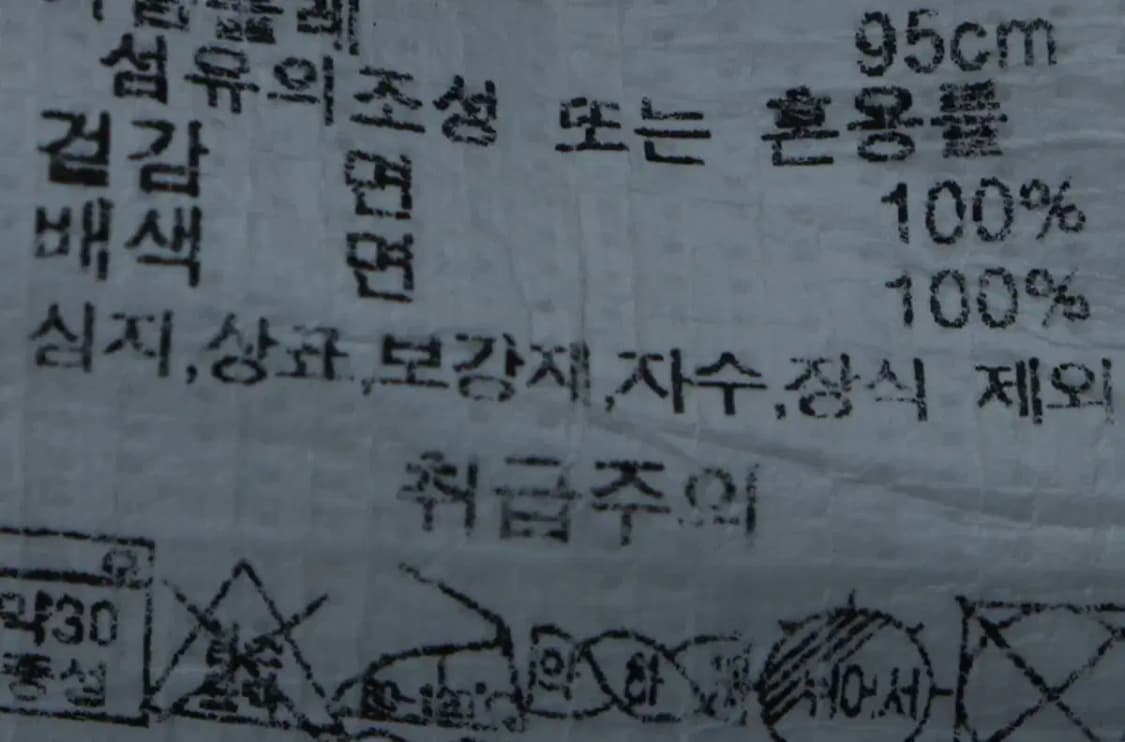 95cm
섬유의조성 또는 혼용률
겉감 면 100%
배색 면 100%
심지,상표,보강재,자수,장식 제외
취급주의
약30
중성